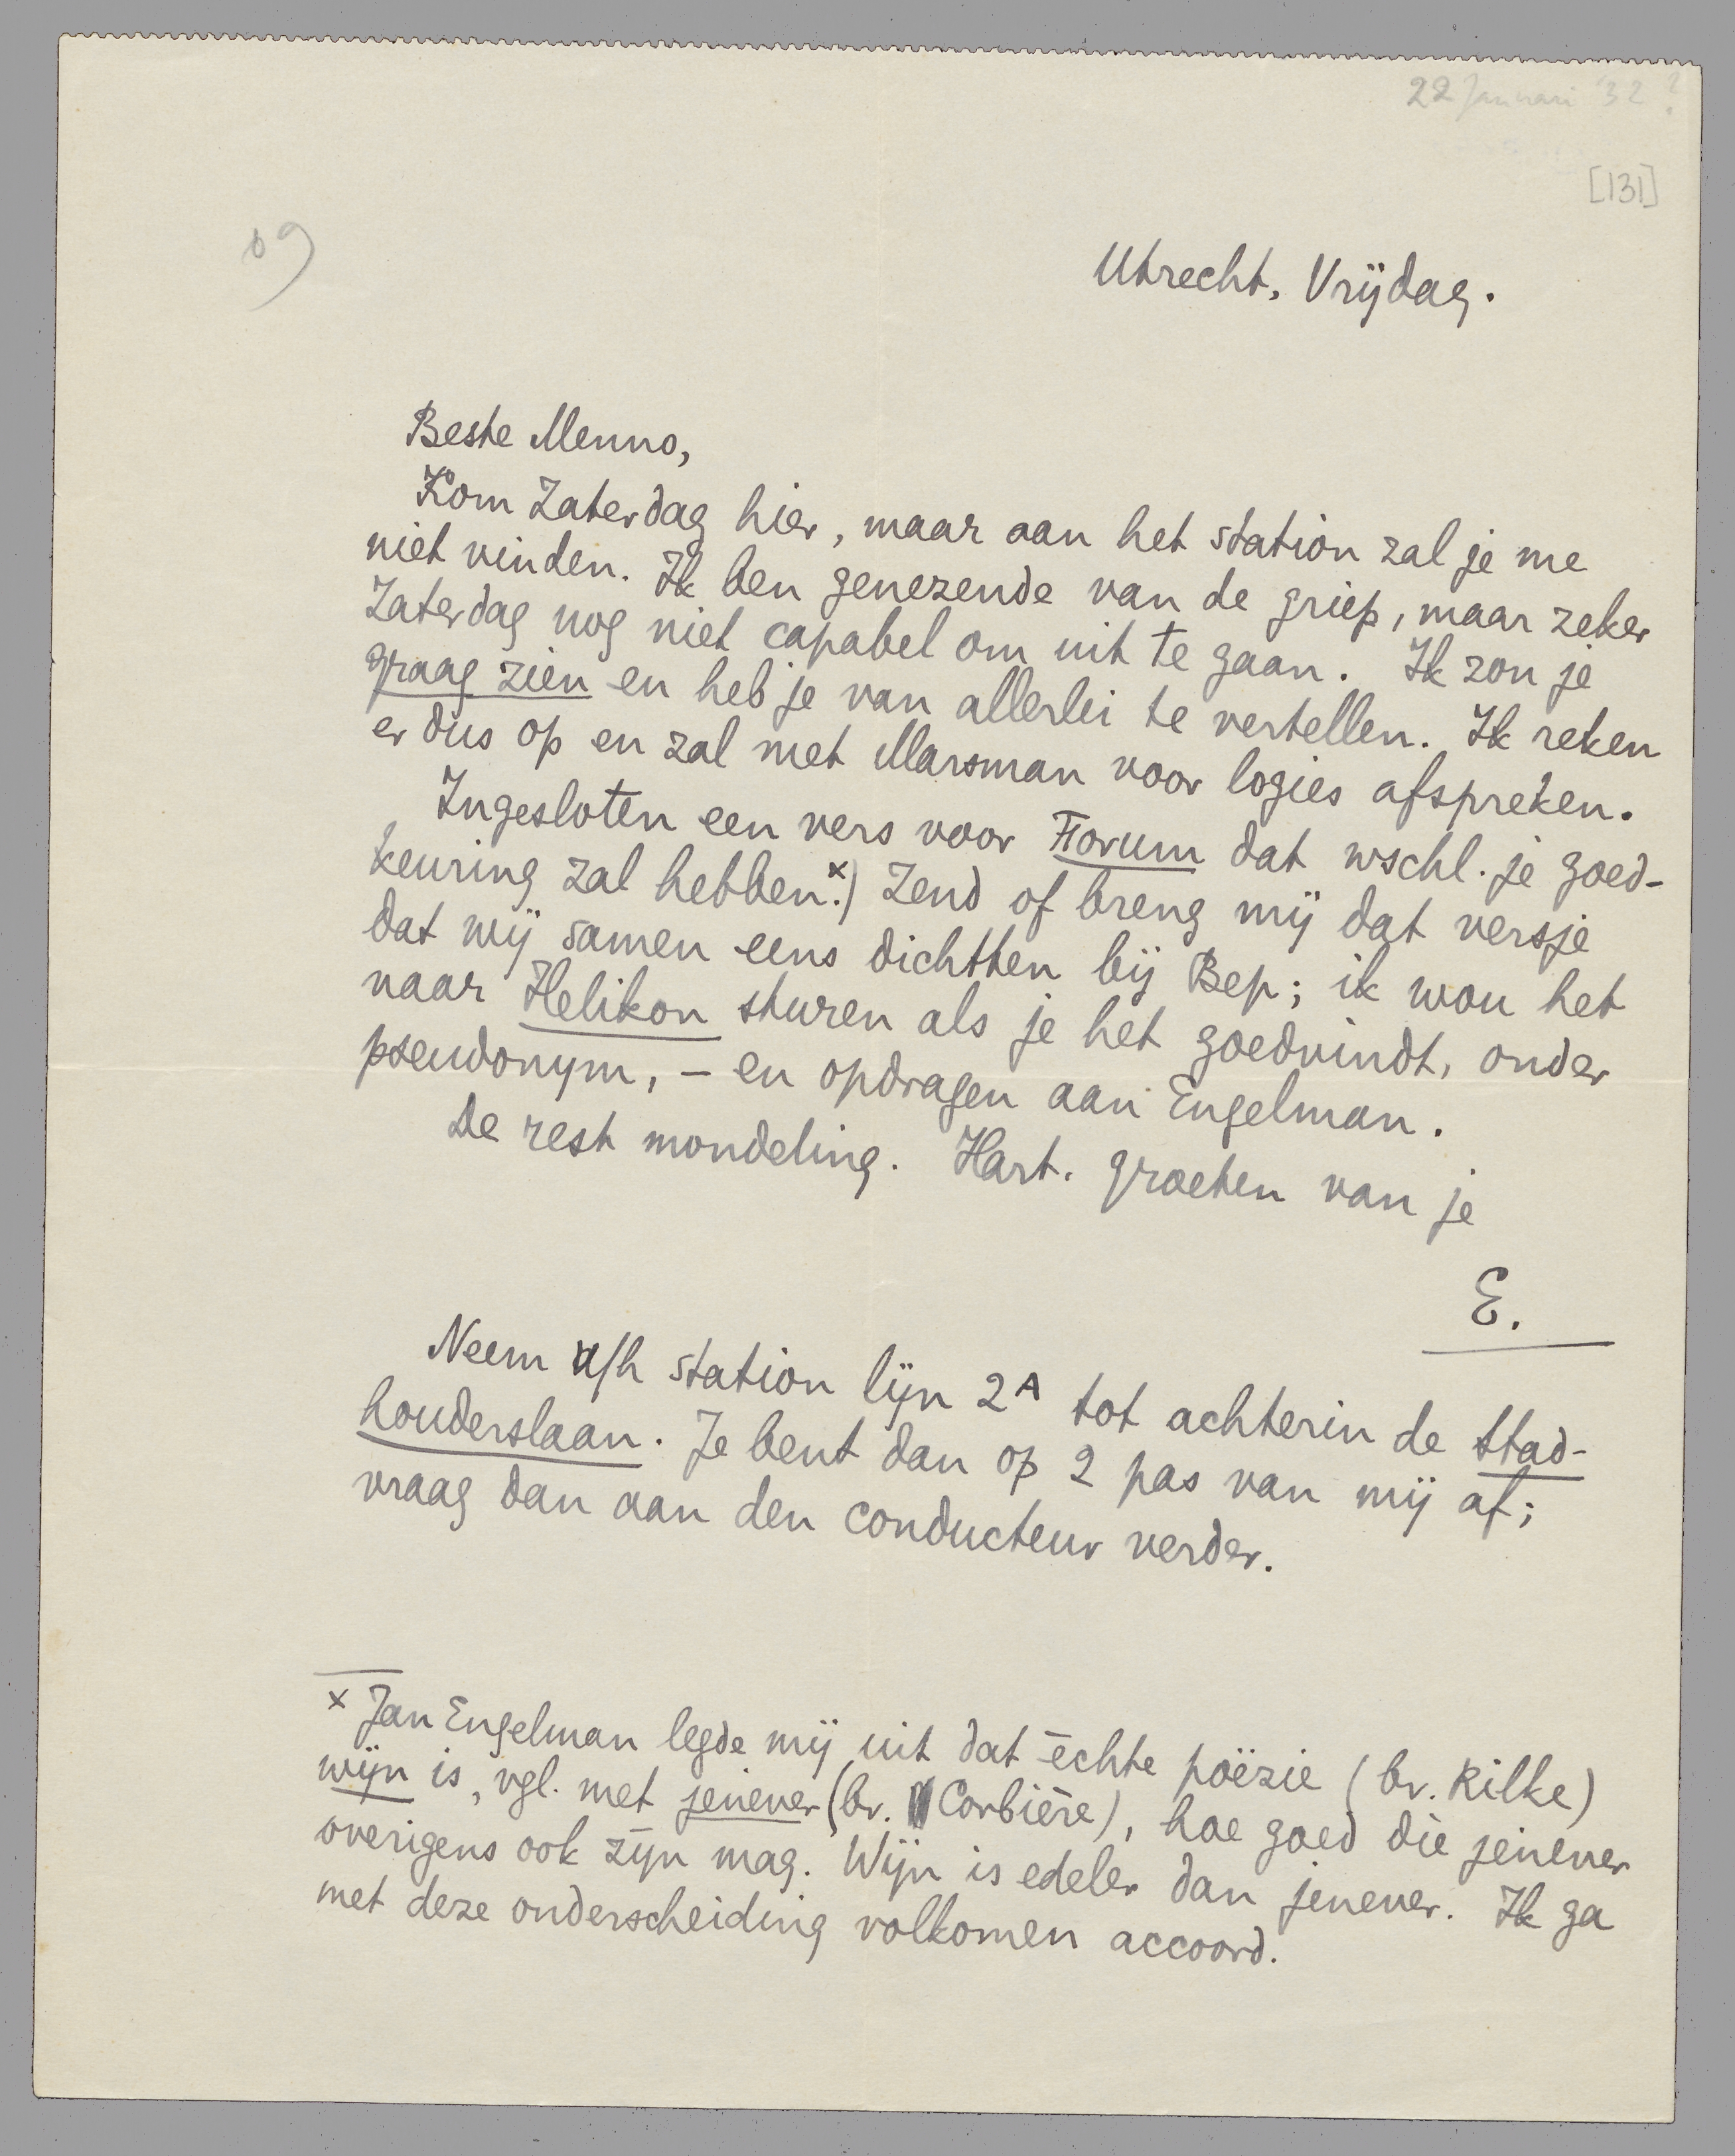 22 Januari '32?
[131]
Utrecht, Vrijdag.
Beste Menno,
Kom Zaterdag hier, maar aan het station zal je me
niet vinden. Ik ben genezende van de griep, maar zeker
Zaterdag nog niet capabel om uit te gaan. Ik zou je
graag zien en heb je van allerlei te vertellen. Ik reken
er dus op en zal met Marsman voor logies afspreken.
Ingesloten een vers voor Forum dat wschl. je goed-
keuring zal hebben.x) Zend of breng mij dat versje
dat wij samen eens dichtten bij Bep; ik wou het
naar Helikon sturen als je het goedvindt, onder
pseudonym, – en opdragen aan Engelman.
De rest mondeling. Hart. groeten van je
E.
Neem a/h station lijn 2A tot achterin de Stad-
houderslaan. Je bent dan op 2 pas van mij af;
vraag dan aan den conducteur verder.
x Jan Engelman legde mij uit dat echte poëzie (bv. Rilke)
wijn is, vgl. met jenever (bv. Corbière), hoe goed die jenever
overigens ook zijn mag. Wijn is edeler dan jenever. Ik ga
met deze onderscheiding volkomen accoord.